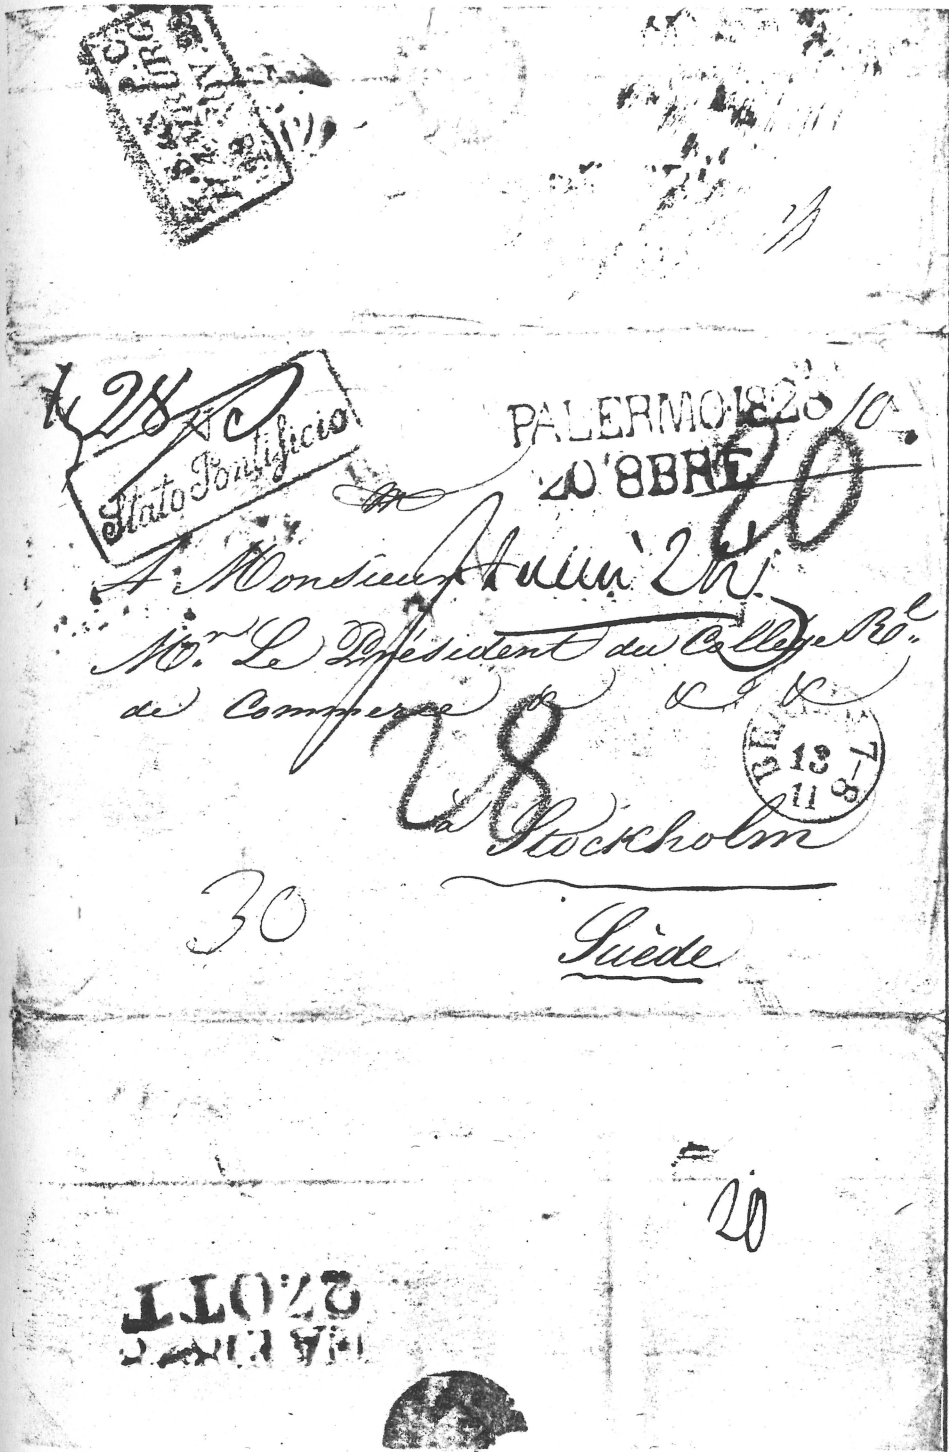 28
Stato Pontificio
PALERMO 1828
20 8BRE
20
A Monsieur
Mr. Le Président du College Rl.
de Commerce & & & &
28
13
11
7-8
à Stockholm
30
Suède
20
27 OTT